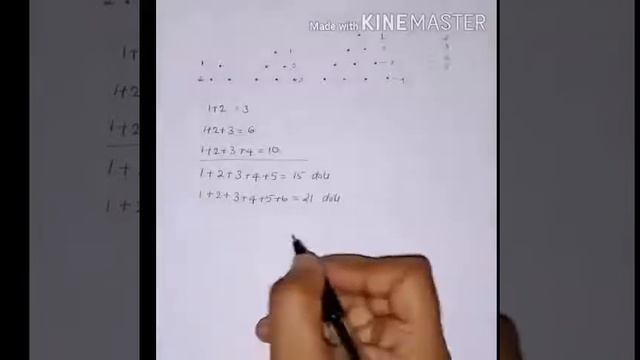 Made with KINEMASTER
1
1
2
1
2
3
2
3
4
1+2 = 3
1+2+3 = 6
1+2+3+4 = 10
1+2+3+4+5 = 15 dots
1+2+3+4+5+6 = 21 dots